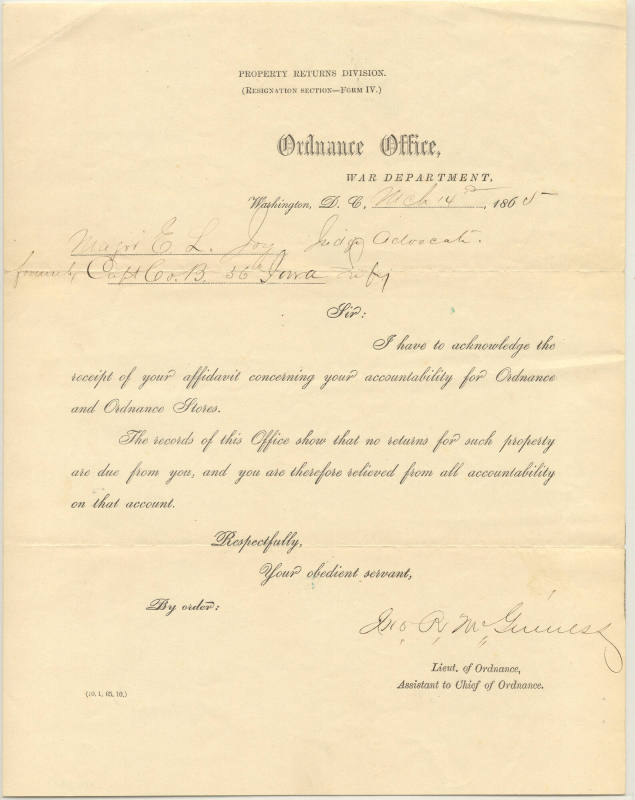 PROPERTY RETURNS DIVISION.
(RESIGNATION SECTION—FORM IV.)
Ordnance Office,
WAR DEPARTMENT,
Washington, D. C. Mch 14th, 1865
Major E. L. Joy Judge Advocate.
formerly Capt Co. B. 36th Iowa Infy
Sir:
I have to acknowledge the
receipt of your affidavit concerning your accountability for Ordnance
and Ordnance Stores.
The records of this Office show that no returns for such property
are due from you, and you are therefore relieved from all accountability
on that account.
Respectfully,
Your obedient servant,
By order:
Jno R. McGinness
Lieut. of Ordnance,
Assistant to Chief of Ordnance.
(10, 1, 63, 10.)